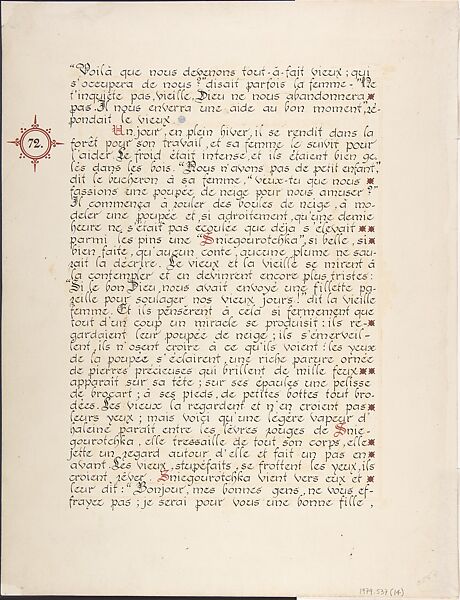 "Voilà que nous devenons tout-à-fait vieux; qui
s'occupera de nous?" disait parfois la femme - "Ne
t'inquiète pas, vieille, Dieu ne nous abandonnera
pas. Il nous enverra une aide au bon moment", ré-
pondait le vieux.
Un jour, en plein hiver, il se rendit dans la
forêt pour son travail, et sa femme le suivit pour
l'aider. Le froid était intense, et ils étaient bien ge-
lés dans les bois. "Nous n'avons pas de petit enfant,"
dit le bucheron à sa femme, "veux-tu que nous
fassions une poupée de neige pour nous amuser?"
Il commença à rouler des boules de neige, à mo-
deler une poupée et si adroitement, qu'une demie
heure ne s'était pas écoulée que déja s'élevait
parmi les pins une "Sniegourotchka", si belle, si
bien faite, qu'aucun conte, aucune plume ne sau-
rait la décrire. Le vieux et la vieille se mirent à
la contempler et en devinrent encore plus tristes:
"Si le bon Dieu, nous avait envoyé une fillette pa-
reille pour soulager nos vieux jours!" dit la vieille
femme. Et ils pensèrent à cela si fermement que
tout d'un coup un miracle se produisit: ils re-
gardaient leur poupée de neige; ils s'émerveil-
lent, ils n'osent croire à ce qu'ils voient: les yeux
de la poupée s'éclairent, une riche parure ornée
de pierres précieuses qui brillent de mille feux
apparait sur sa tête; sur ses épaules une pelisse
de brocart; à ses pieds, de petites bottes tout bro-
dées. Les vieux la regardent et n'en croient pas
leurs yeux; mais voici qu'une légère vapeur d'
haleine parait entre les lèvres rouges de Snie-
gourotchka, elle tressaille de tout son corps, elle
jette un regard autour d'elle et fait un pas en
avant. Les vieux, stupéfaits, se frottent les yeux, ils
croient rêver. Sniegourotchka vient vers eux et
leur dit: "Bonjour, mes bonnes gens, ne vous ef-
frayez pas; je serai pour vous une bonne fille,
72.
1979.537(14)